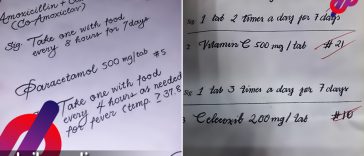 Amoxicillin + Cl
(Co-Amoxiclav)
Sig. Take one with food
every 8 hours for 7 days
Paracetamol 500 mg/tab #5
Take one with food
every 4 hours as needed
for fever (temp. ≥ 37.8
Sig 1 tab 2 times a day for 7 days
2 Vitamin C 500 mg / tab #21
Sig 1 tab 3 times a day for 7 days
3 Celecoxib 200 mg / tab #10